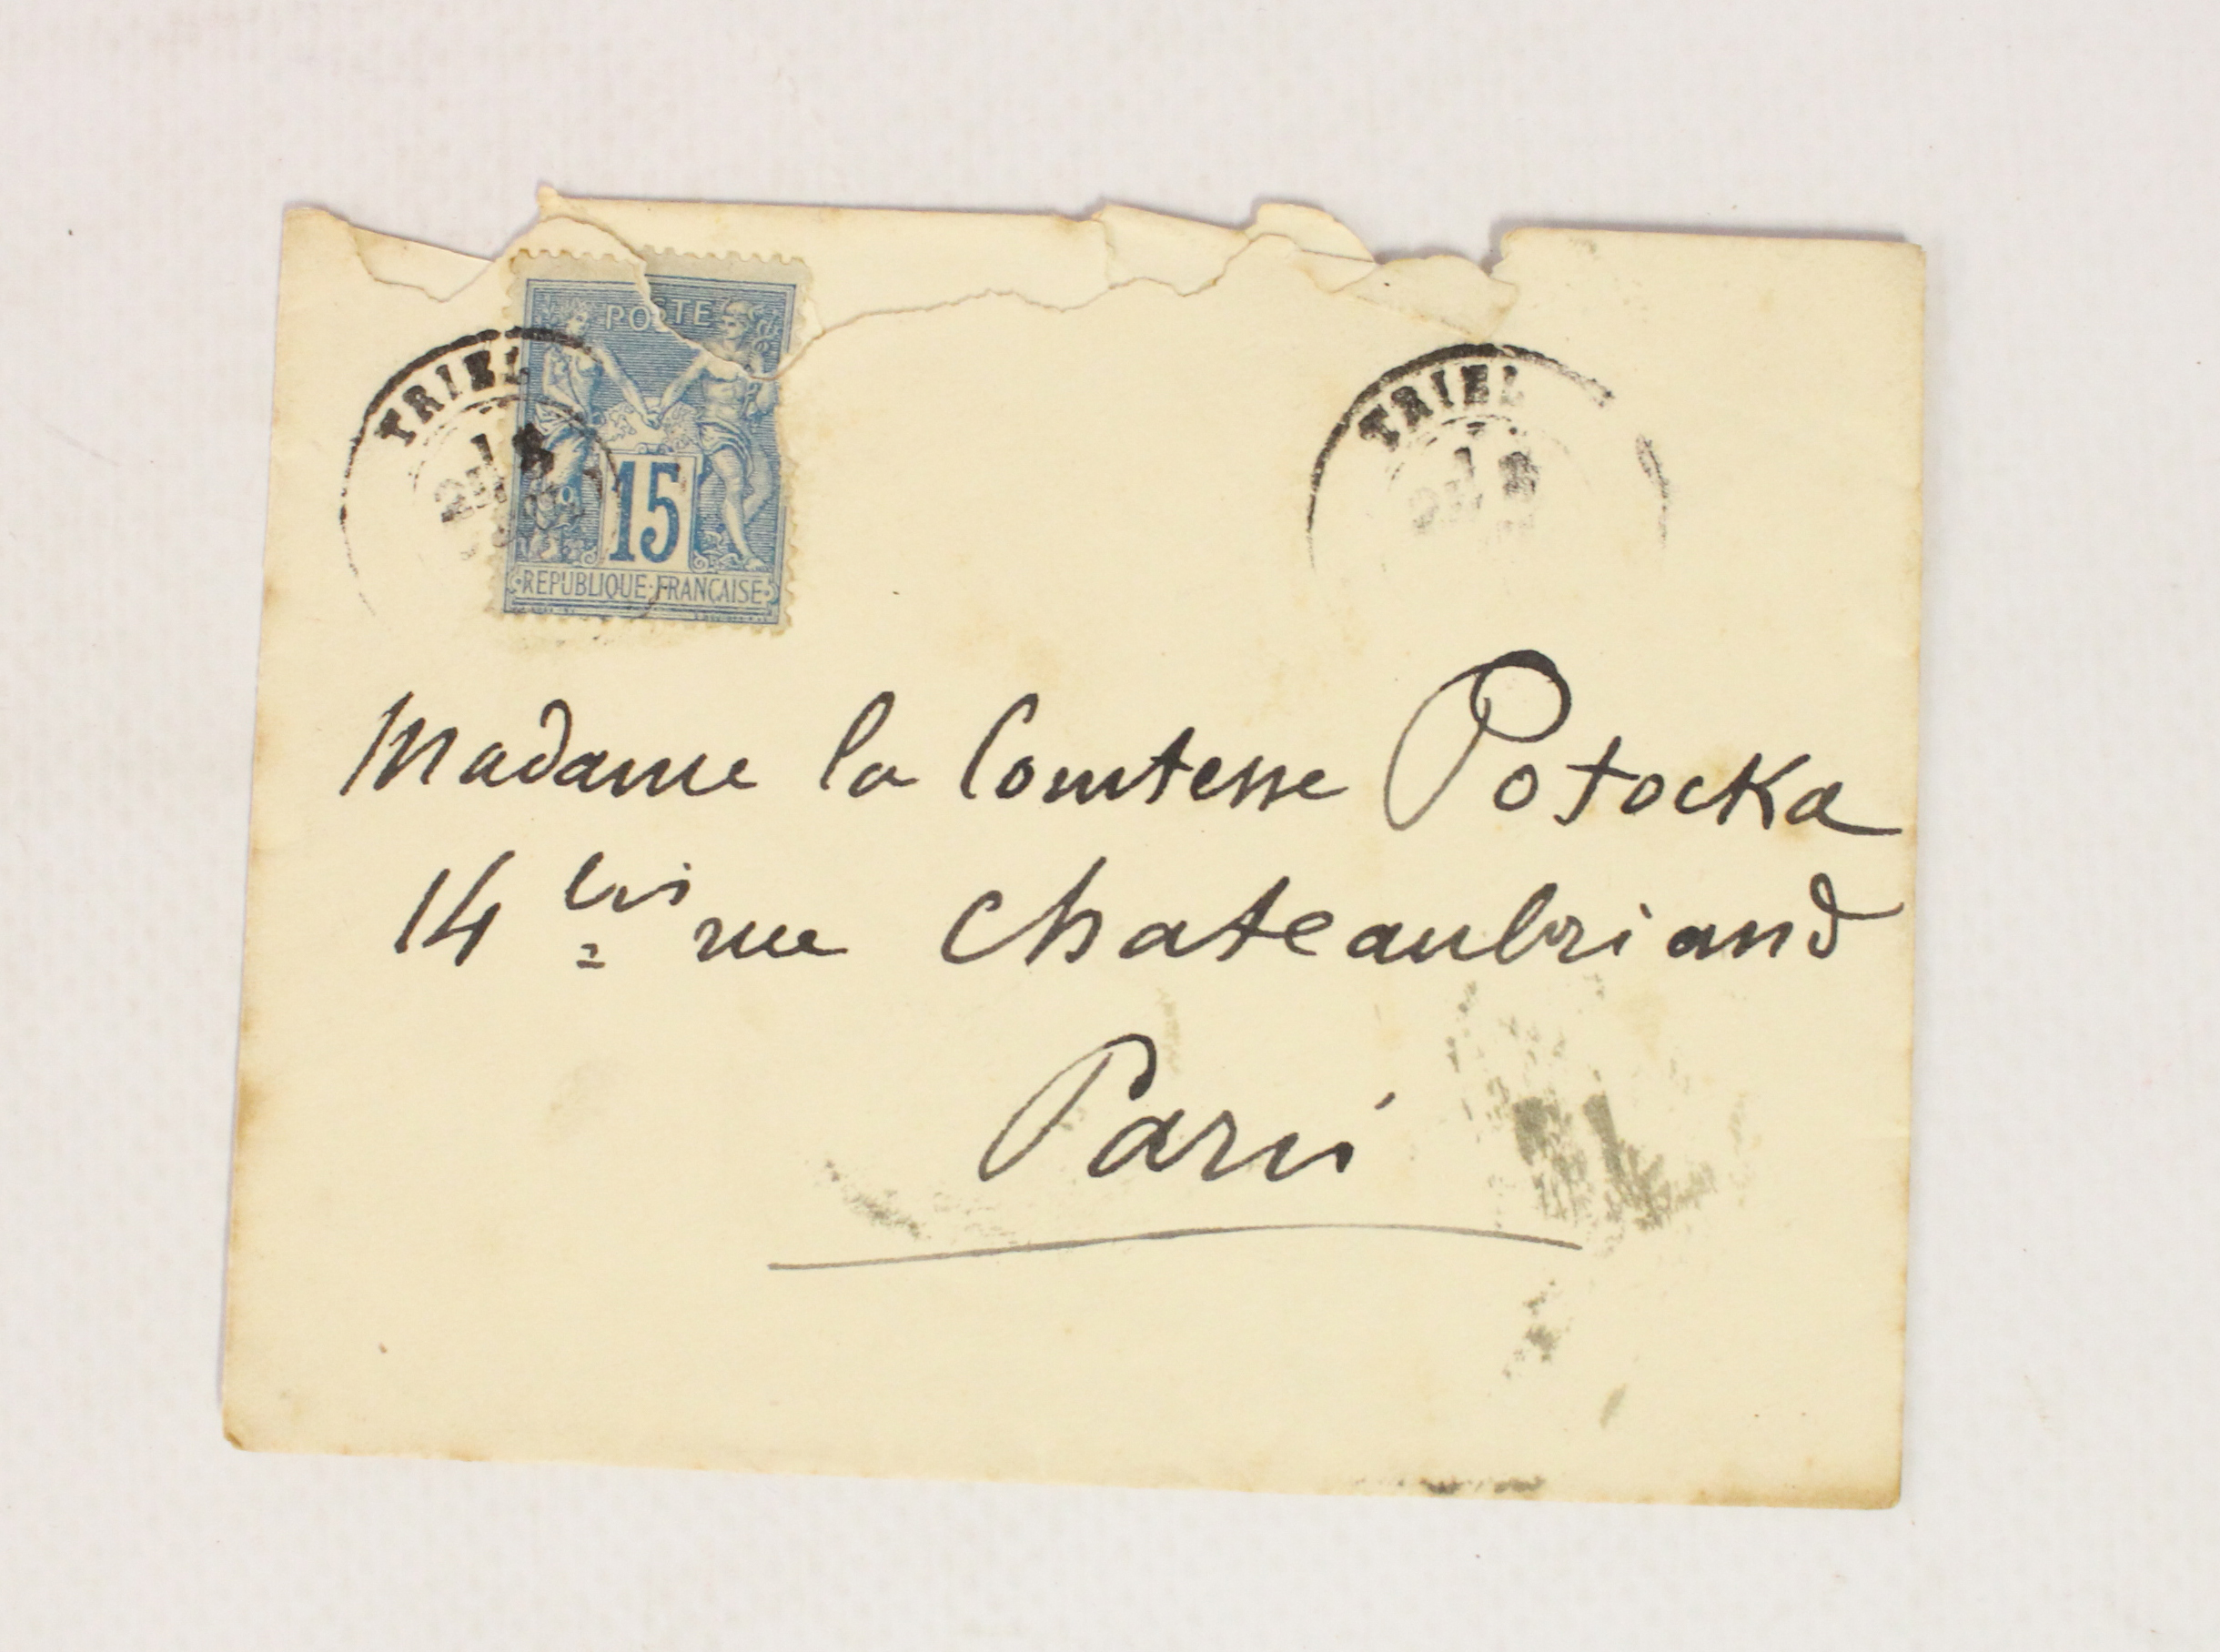 POSTE
15
REPUBLIQUE·FRANÇAISE
TRIEL
TRIEL
Madame la Comtesse Potocka
14 bis rue Chateaubriand
Paris